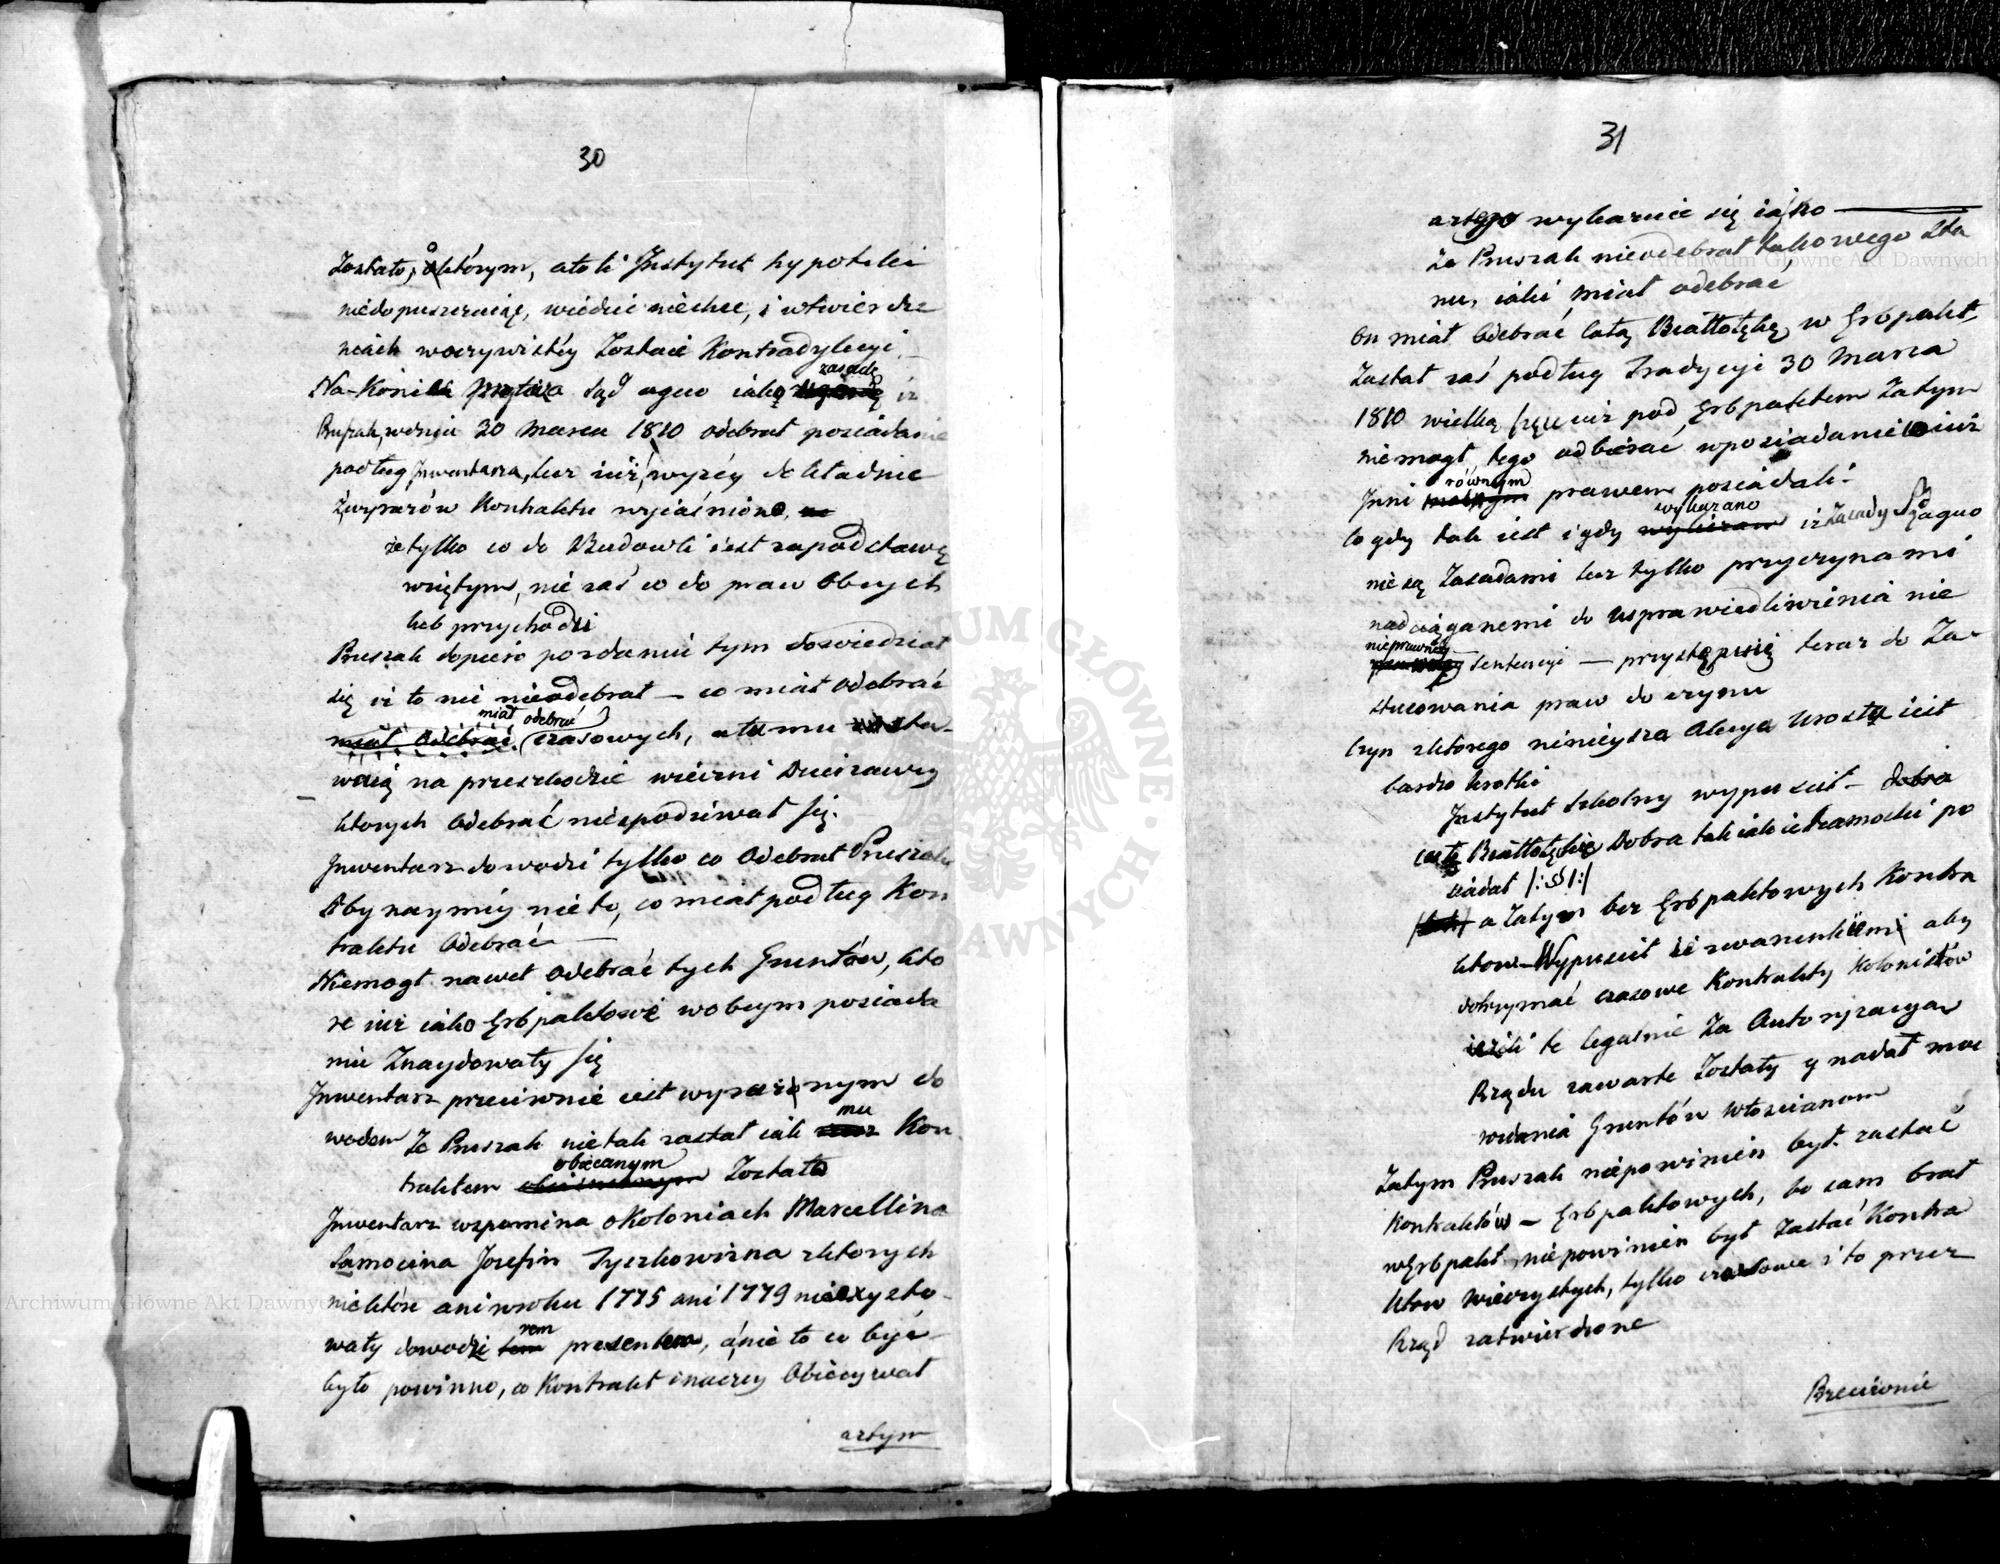 30
Zostało, o którym, atoli Instytut hypoteki
niedopuszczaiąc, wiedzieć niechce, i w twierdze
niach w oczywistéy Zostaie Kontradykcyi.
zasadę
Na-Koniec Sąd aquo iako iż
Pruszak w dniu 30 Marca 1810 odebrał posiadanie
podług Inwentarza, lecz iuż wyżéy dokładnie
Z wyrazów Kontraktu wyiaśniono,
że tylko co do Budowli iest za podstawę
wziętym, nie zaś co do praw Obcych
lub przychodzi
Pruszak dopiero po zdaniu tym dowiedział
się iż to nie nieodebrał — co miał Odebrać
miał odebrać
miał Odebrać czasowych, a temu
na przeszkodzie wieczni Dzierzawcy
ktorych Odebrać niespodziewał się.
Inwentarz dowodzi tylko co Odebrał Pruszak
Aby naymniéy nie to, co miał podług Kon
traktu Odebrać —
Niemogł nawet Odebrać tych Gruntów, kto
re iuż iako Erbpaktowe w obcym posiada
niu Znaydowały się
Inwentarz przeciwnie iest wyraźnym do
mu
wodem Że Pruszak nie tak zastał iak Kon
obiecanym
traktem Zostało
Inwentarz wspomina o Koloniach Marcellina
Samocina Josefin Tyszkowizna z ktorych
niektóre ani w roku 1775 ani 1779 nieexysto-
rem
wały dowodzi presentem, a nie to co bydź
było powinno, co Kontrakt inaczey Obiecywał
a z tym
31
a z tego wykazuie się iako
Że Pruszak nieodebrał takowego Sta
nu, iaki miał odebrać
bu miał Odebrać całą Białłołękę w Erbpakt,
Zastał zaś podług Tradycyi 30 Marca
1810 wielką część iuż pod Erbpaktem Zatym
niemogł tego odbierać w posiadanie iuż
równym
Inni prawem posiadali.
wykazano
Co gdy tak iest i gdy iż Zasady Sądu aquo
nie są Zasadami lecz tylko przyczynami
naciąganemi do usprawiedliwienia nie
nieprawney
Sentencyi — przystępuię teraz do Za-
stosowania praw do czynu
Czyn z ktorego ninieysza Akcya Urosła iest
bardzo krotki
Instytut Szkolny wypuścił — dobra
całą Białłołękę Dobra tak iak ie Kamocki po
siadał /:§ 1:/
a Zatym bez Erbpaktowych Kontra
ktow — Wypuścił ie z warunkiem aby
dotrzymać czasowe Kontrakty Kolonistów
ieżeli te legalnie Za Autoryzacyą
Rządu zawarte Zostały y nadał moc
nadania Gruntów Włoscianom
Zatym Pruszak niepowinien był zastać
Kontraktów — Erbpaktowych, bo sam brał
w Erbpakt niepowinien był Zastać Kontra
ktow Wieczystych, tylko czasowe i to przez
Rząd zatwierdzone
Przeciwnie